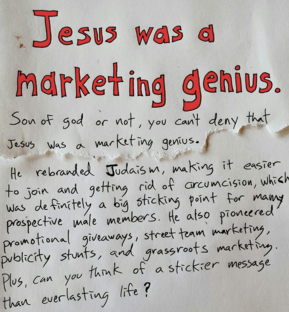 Jesus was a
marketing genius.
Son of god or not, you can't deny that
Jesus was a marketing genius.
He rebranded Judaism, making it easier
to join and getting rid of circumcision, which
was definitely a big sticking point for many
prospective male members. He also pioneered
promotional giveaways, street team marketing,
publicity stunts, and grassroots marketing.
Plus, can you think of a stickier message
than everlasting life?